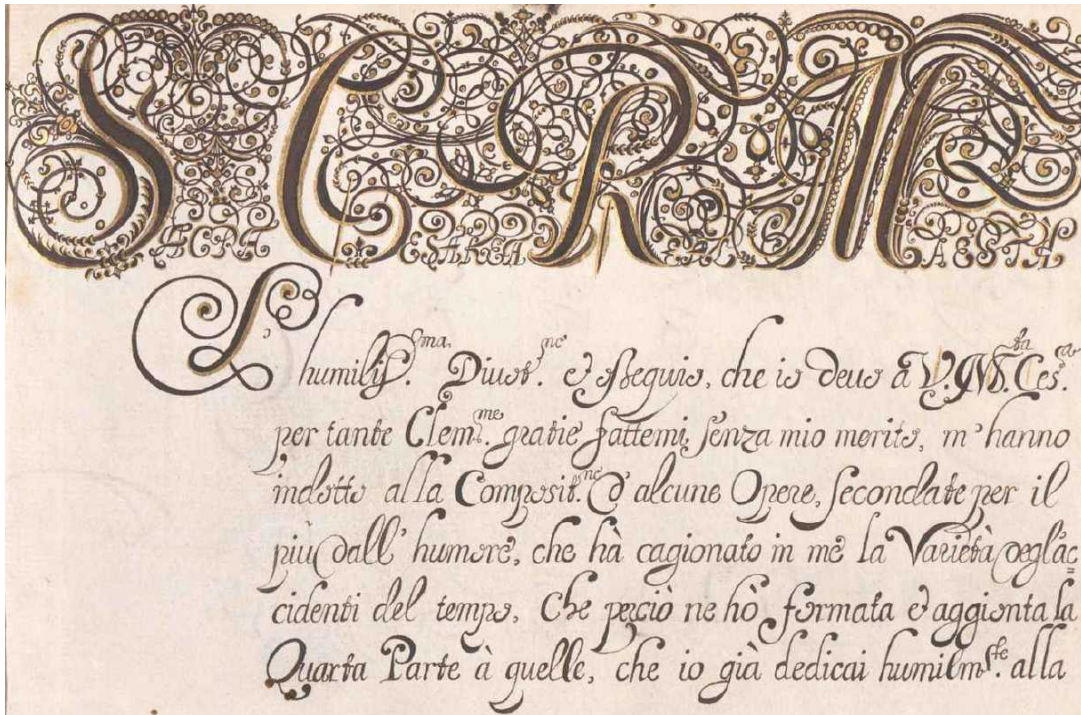 SACRA CESAREA REAL MAESTA
L' humiliss.ma Diuot.ne é osseguio, che io deuo a V. M.ta Ces.a
per tante Clem.me gratie fattemi, senza mio merito, m'hanno
indotto alla Composit.ne d'alcune Opere, secondate per il
piu dall' humore, che hà cagionato in me la Varietà degl'ac=
cidenti del tempo. Che perciò ne hò formata é aggionta la
Quarta Parte à quelle, che io già dedicai humilm.te alla